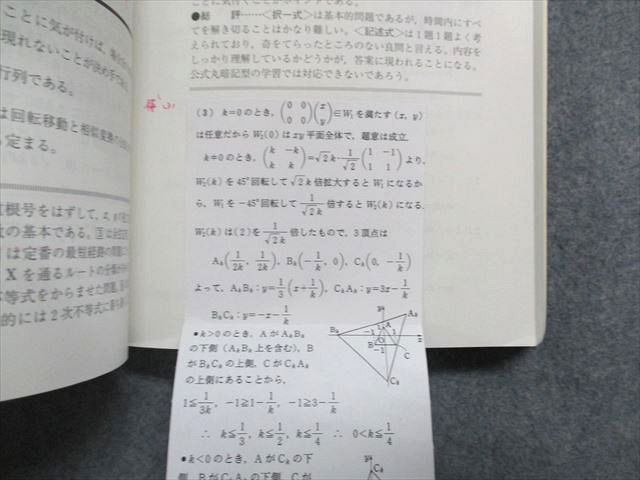 ことに気付けば,
現れないことが決め手であ
行列である。
は回転移動と相似変換
定まる。
根号をはずして,
数の基本である。
は定番の最短経路の問題に
Xを通るルートの
不等式をからませた問題,
的には2次不等式に
ことに気付くことがポイントである。
●総 評……<択一式>は基本的問題であるが,時間内にすべ
てを解き切ることはかなり難しい。<記述式>は1題1題よく考
えられており,奇をてらったところのない良問と言える。内容を
しっかり理解しているかどうかが,答案に現われることになる。
公式丸暗記型の学習では対応できないであろう。
(3) k=0のとき,(0 0 0 0)(x y)∈W₁を満たす(x, y)
は任意だからW₂(0)はxy平面全体で,題意は成立.
k≠0のとき,(k -k k k)=√2k・1/√2(1 -1 1 1)より,
W₂(k)を45°回転して√2k倍拡大するとW₁になるか
ら,W₁を-45°回転して1/√2k倍するとW₂(k)になる.
W₂(k)は(2)を1/√2k倍したもので,3頂点は
Aₖ(1/2k, 1/2k), Bₖ(-1/k, 0), Cₖ(0, -1/k)
よって,AₖBₖ:y=1/3(x+1/k), CₖAₖ:y=3x-1/k
BₖCₖ:y=-x-1/k
●k>0のとき,AがAₖBₖ
の下側(AₖBₖ上を含む),B
がBₖCₖの上側,CがCₖAₖ
の上側にあることから,
1≦1/3k, -1≧1-1/k, -1≧3-1/k
∴ k≦1/3, k≦1/2, k≦1/4 ∴ 0<k≦1/4
●k<0のとき,AがCₖの下
側,BがCₖAₖの下側,Cが
y
Aₖ
Bₖ
1
A
-1
O
1
x
B
-1
C
Cₖ
y
Cₖ